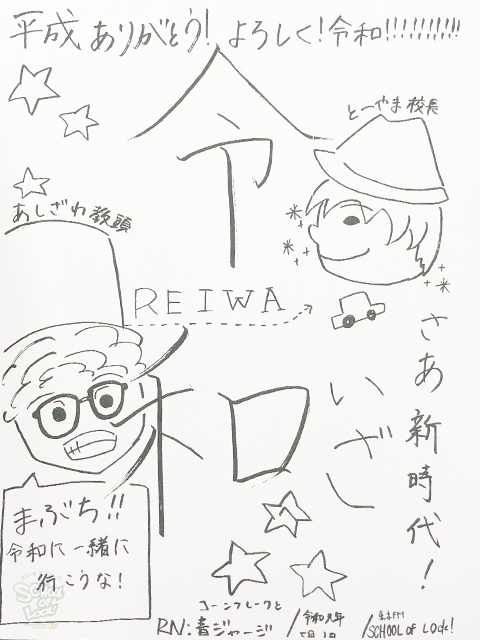 平成 ありがとう! よろしく!令和!!!!!!!!!!
とーやま校長
あしざわ教頭
令
REIWA
和
さあ新時代!
いざ
まぶち!!
令和に一緒に
行こうな!
コーンフレークと
RN:青ジャージ
/令和元年
5月1日
/東京FM
SCHOOL of LOCK!